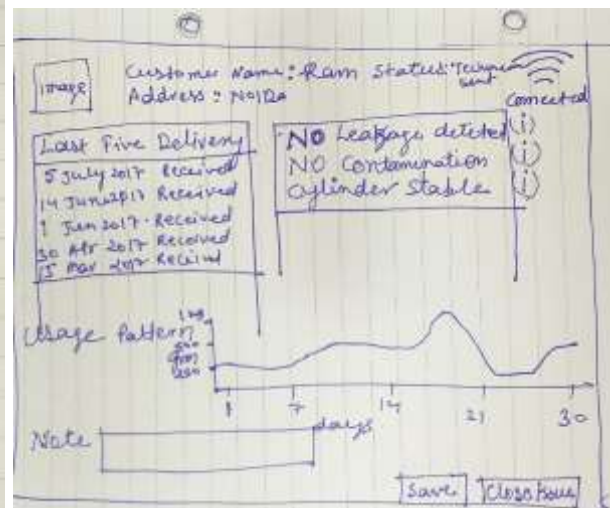 image
Customer Name: Ram Status: Technician sent
Address: NOIDA
Connected
Last Five Delivery
5 July 2017 Received
14 June 2017 Received
1 Jun 2017 - Received
30 Apr 2017 Received
15 Mar 2017 Received
NO Leakage deteted (i)
NO Contamination (i)
Cylinder Stable (i)
Usage Pattern
250
1 7 14 21 30
days
Note
Save